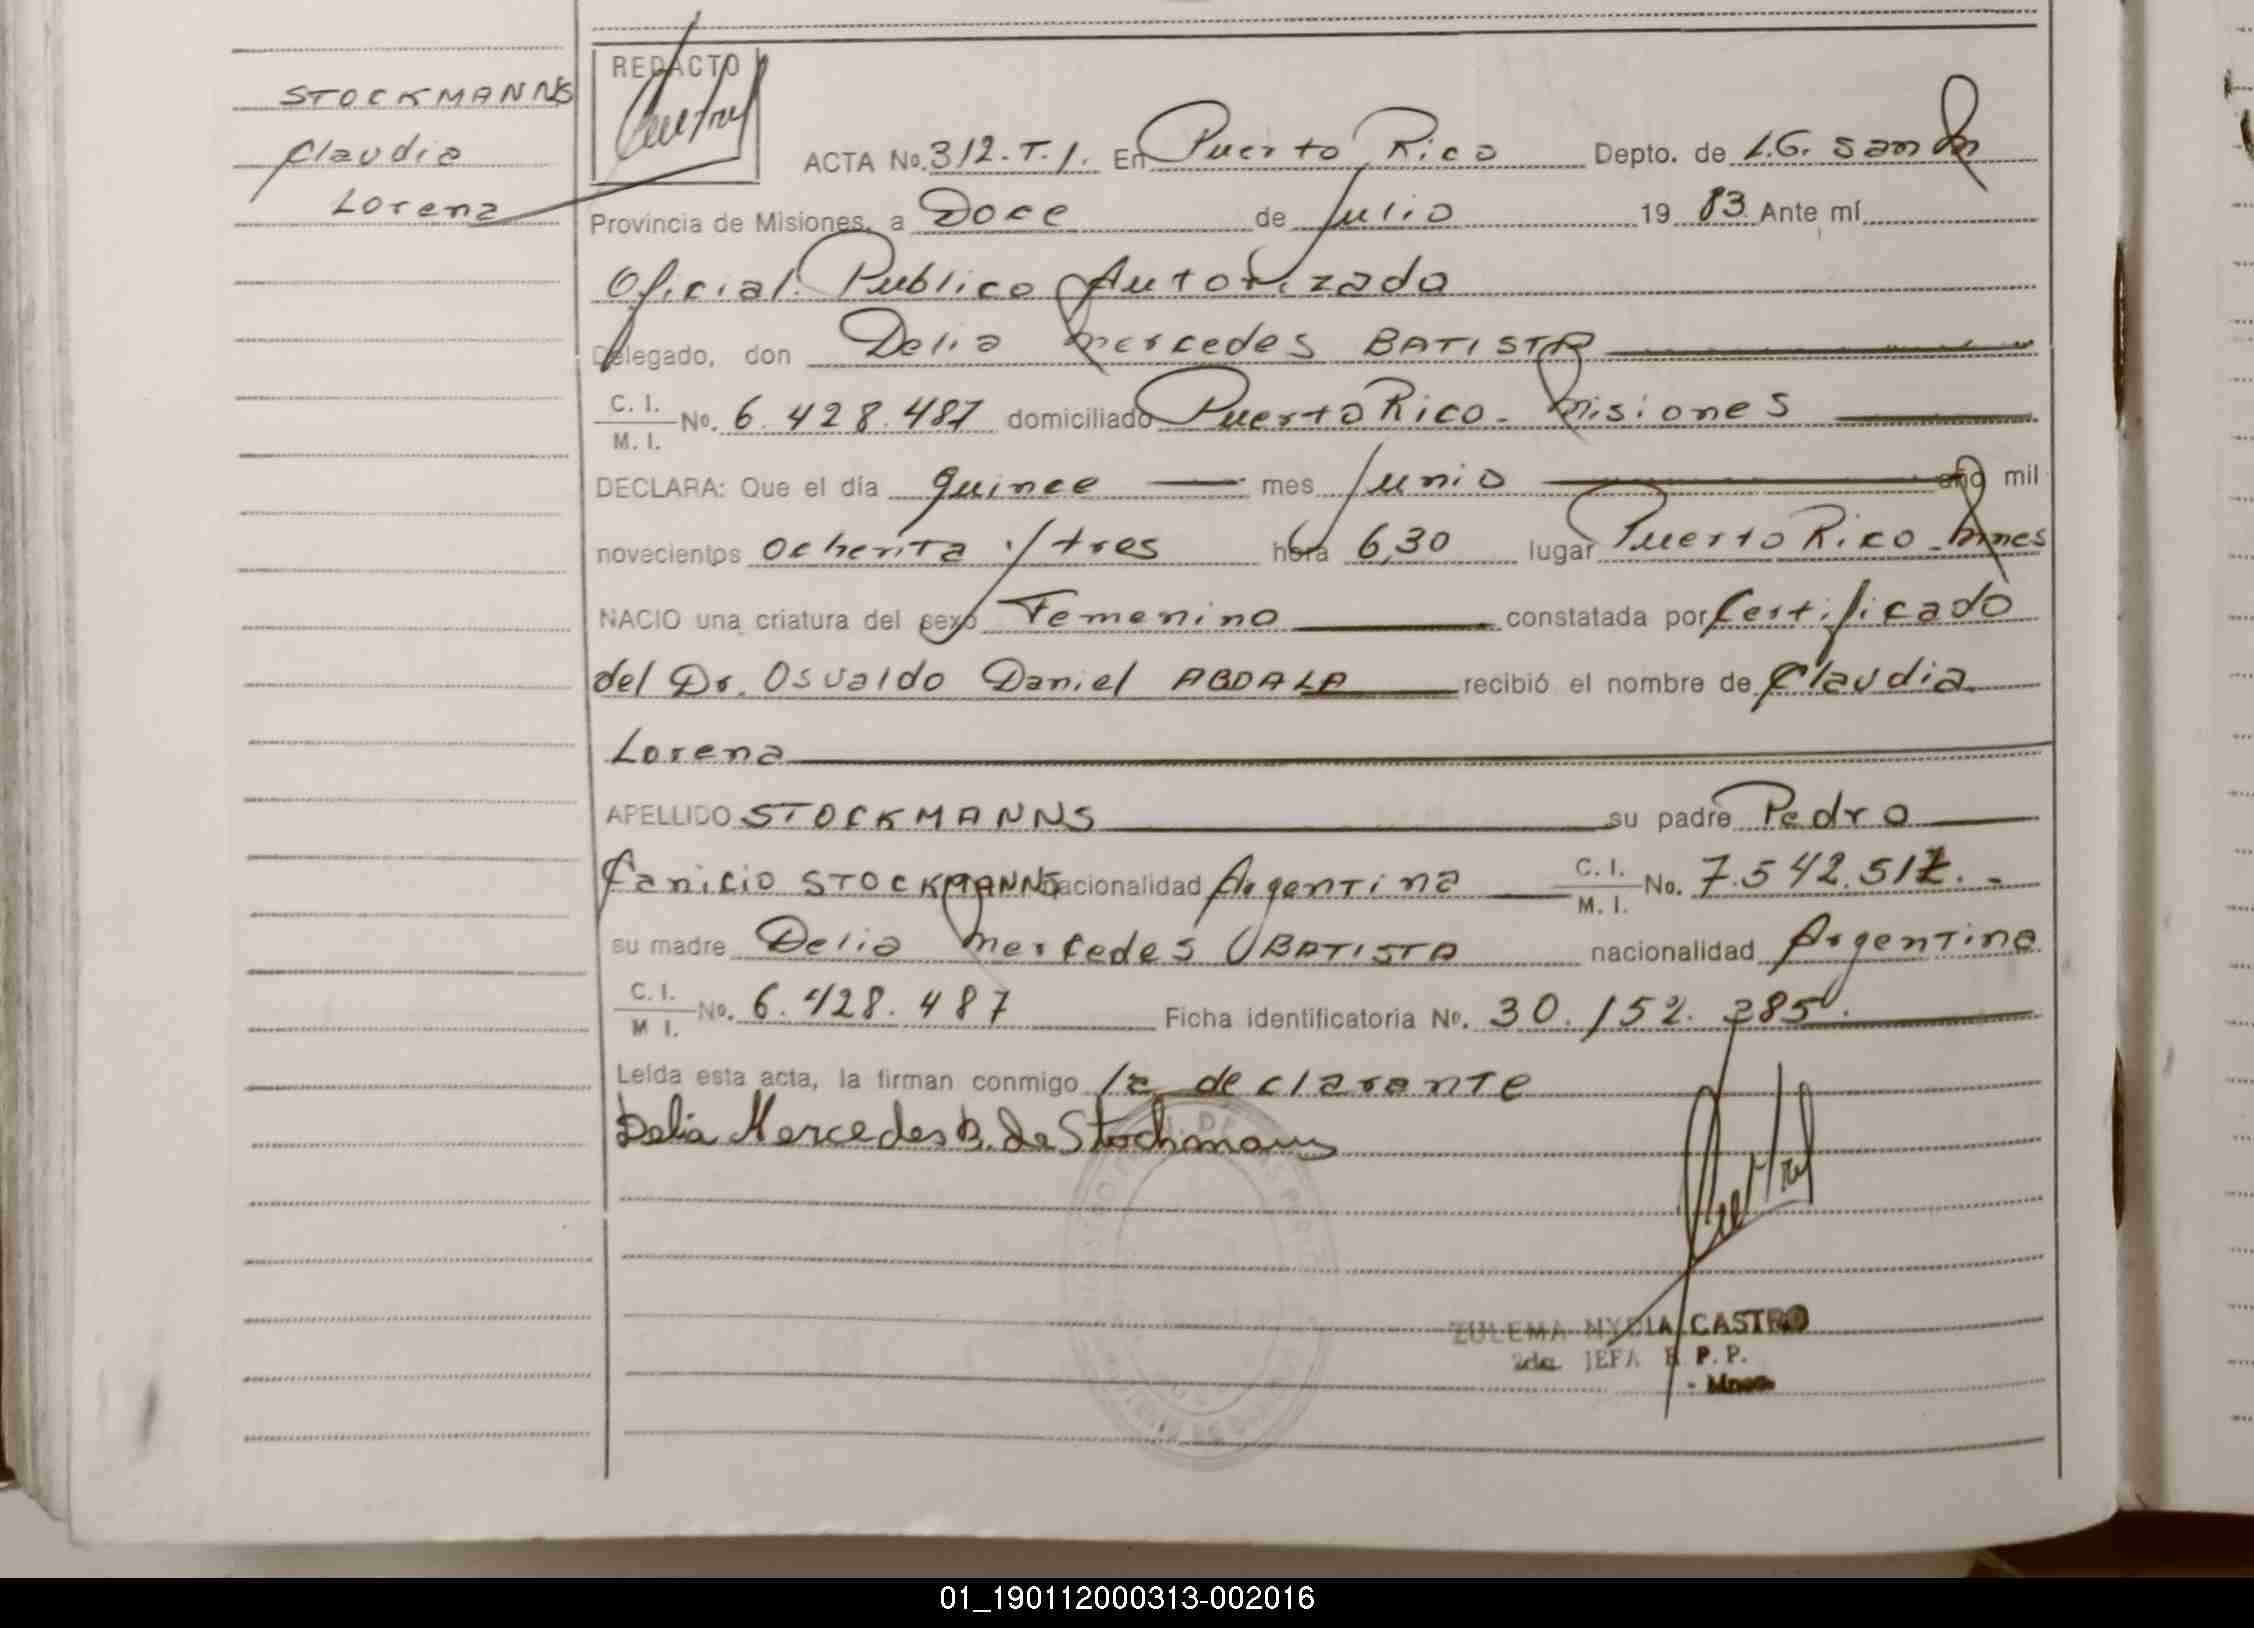 STOCKMANNS
Claudia
Lorena
REDACTO
ACTA No. 312. T. 1. En Puerto Rico Depto. de L.G. San Mn
Provincia de Misiones, a Doce de Julio 19 83 Ante mí
Oficial Publico Autorizado
Delegado, don Delia Mercedes BATISTA
C. I.
M. I. No. 6.428.487 domiciliado Puerto Rico - Misiones
DECLARA: Que el día quince mes Junio año mil
novecientos ochenta y tres hora 6,30 lugar Puerto Rico - Mnes
NACIO una criatura del sexo Femenino constatada por Certificado
del Dr. Osvaldo Daniel ABDALA recibió el nombre de Claudia
Lorena
APELLIDO STOCKMANNS su padre Pedro
Canicio STOCKMANNS nacionalidad Argentina C. I.
M. I. No. 7.542.517. -
su madre Delia Mercedes BATISTA nacionalidad Argentina
C. I.
M I. No. 6.428.487 Ficha identificatoria No. 30.152.385.
Leída esta acta, la firman conmigo la declarante
Delia Mercedes B. de Stockmanns
ZULEMA NYDIA CASTRO
2da JEFA R P. P.
- Mnes
01_190112000313-002016